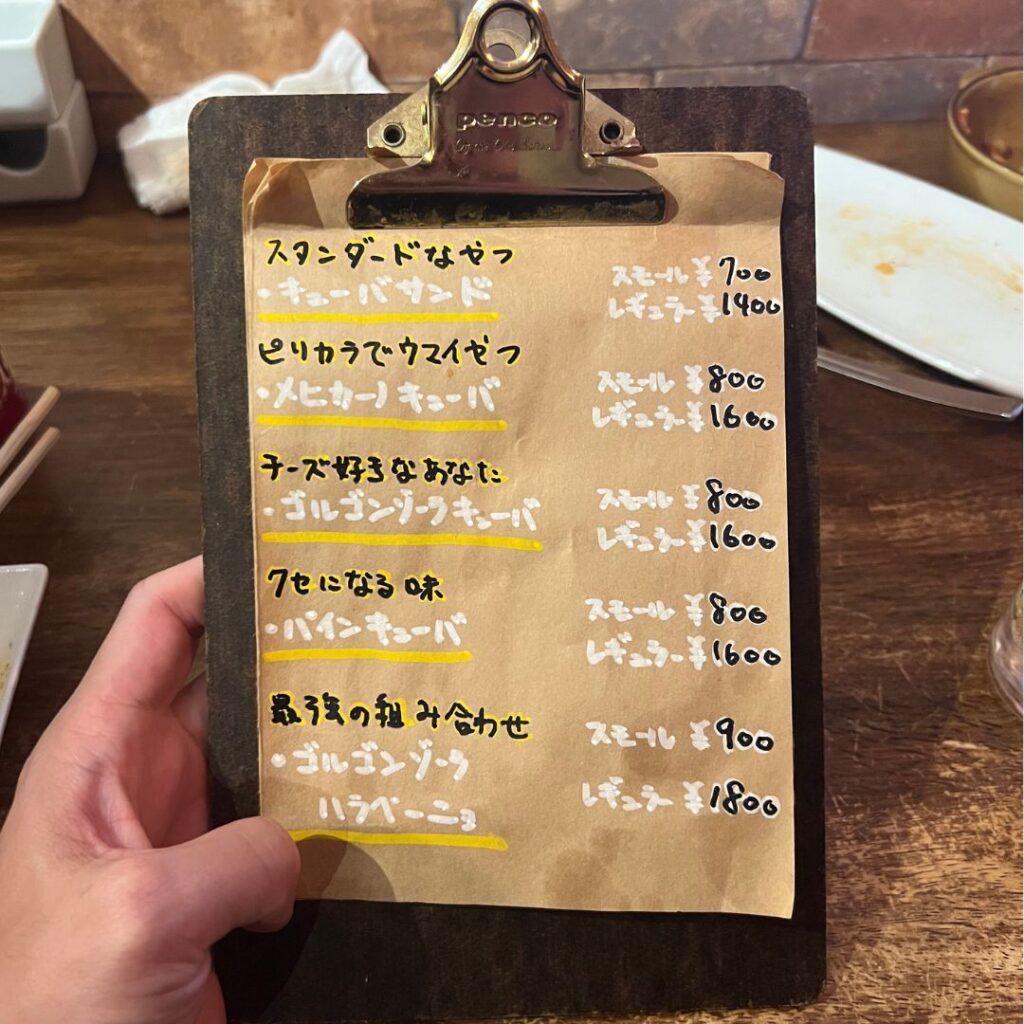 penco
スタンダードなやつ
・キューバサンド
スモール ¥700
レギュラー ¥1400
ピリカラでウマイやつ
・メヒカーノキューバ
スモール ¥800
レギュラー ¥1600
チーズ好きなあなた
・ゴルゴンゾーラキューバ
スモール ¥800
レギュラー ¥1600
クセになる味
・パインキューバ
スモール ¥800
レギュラー ¥1600
最強の組み合わせ
・ゴルゴンゾーラ
ハラペーニョ
スモール ¥900
レギュラー ¥1800